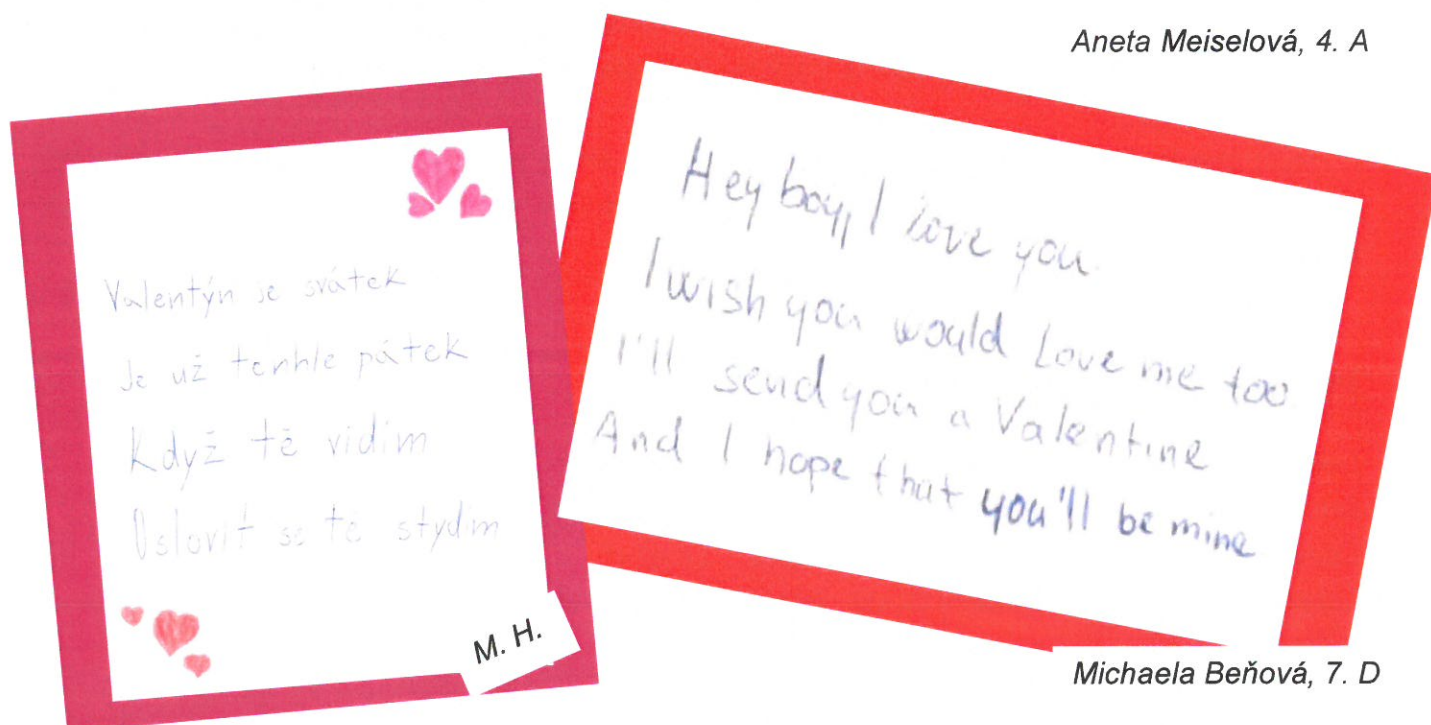 Aneta Meiselová, 4. A
Valentýn je svátek
Je už tenhle pátek
Když tě vidím
Oslovit se tě stydím
M. H.
Hey boy, I love you
I wish you would love me too
I'll send you a Valentine
And I hope that you'll be mine
Michaela Beňová, 7. D